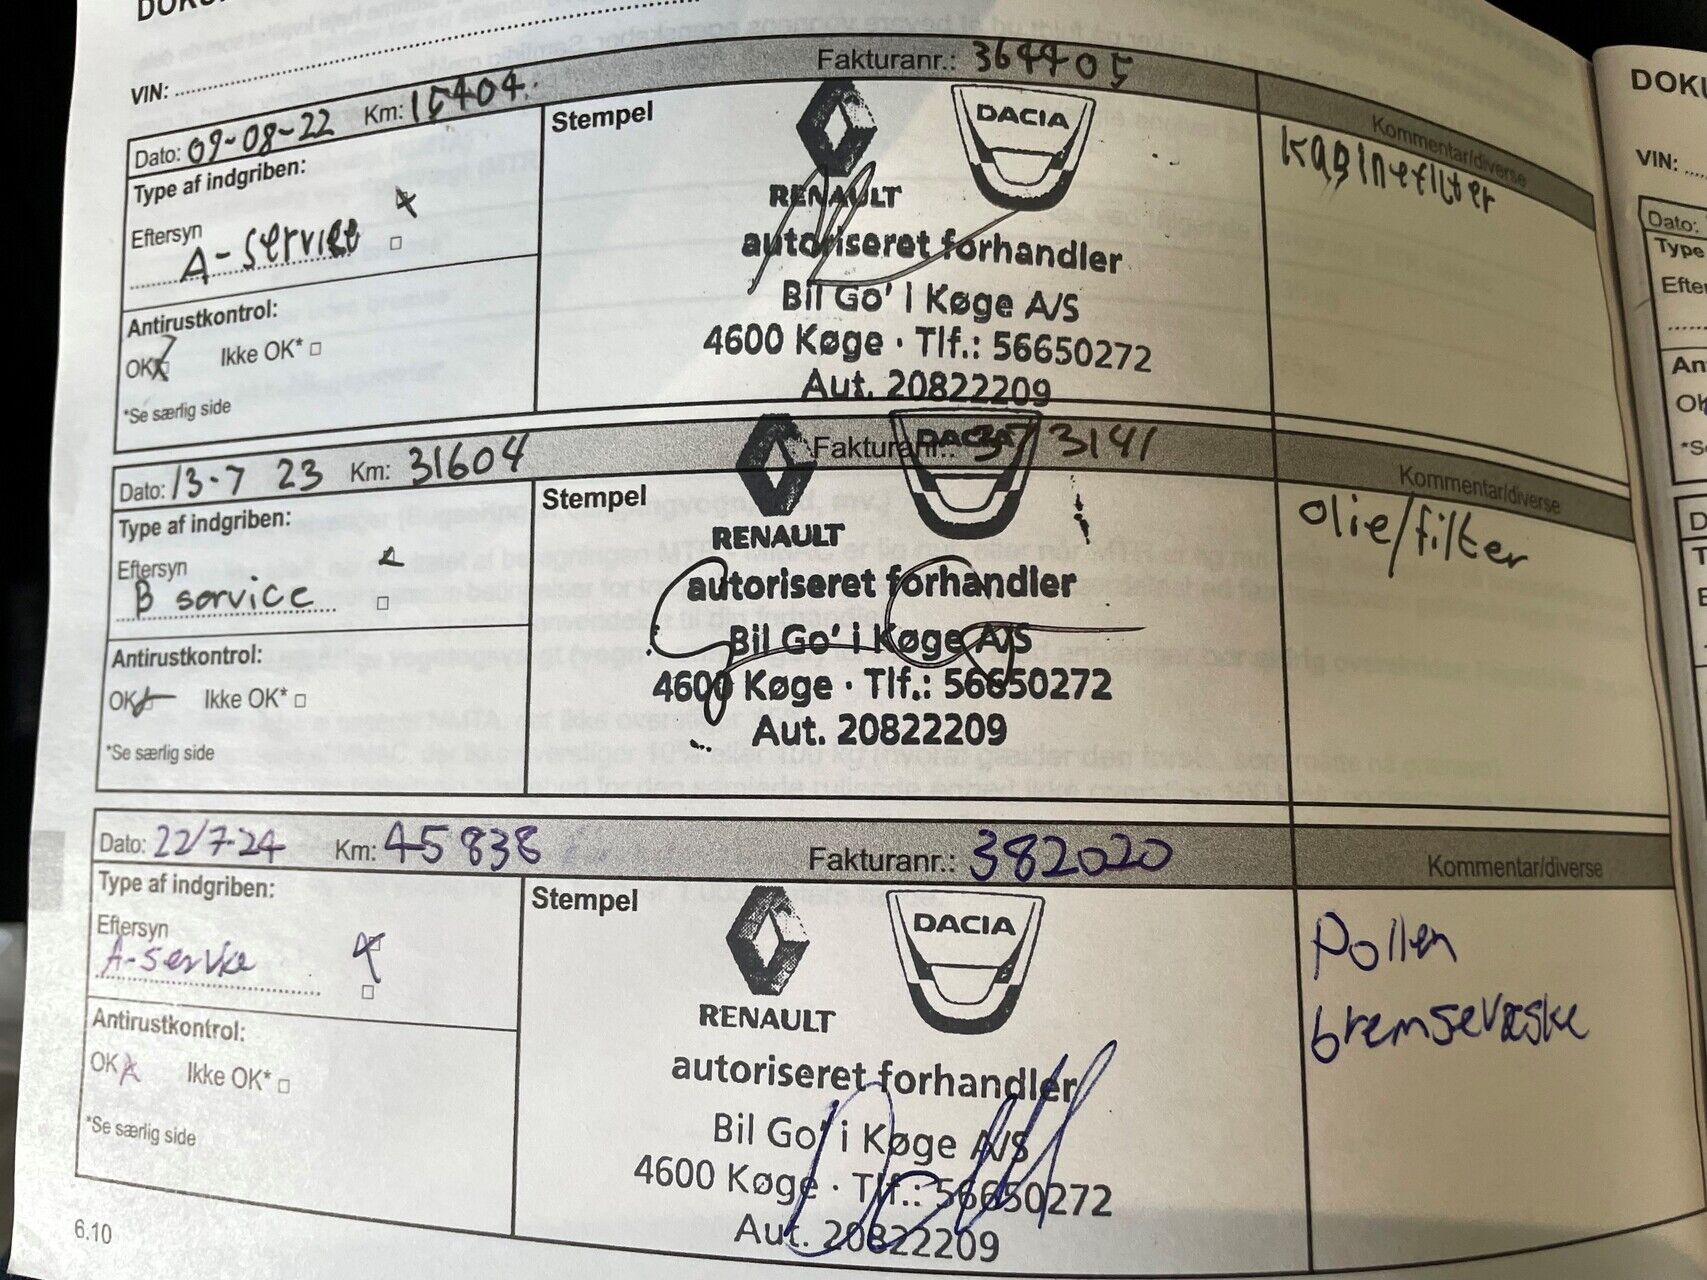 VIN:
Dato: 09-08-22 Km: 15404 Fakturanr.: 364405
Type af indgriben:
Eftersyn
A-service
Antirustkontrol:
OK Ikke OK*
*Se særlig side
Stempel
RENAULT DACIA
autoriseret forhandler
Bil Go' i Køge A/S
4600 Køge · Tlf.: 56650272
Aut. 20822209
Kommentar/diverse
Kabinefilter
Dato: 13-7 23 Km: 31604 Fakturanr.: 373141
Type af indgriben:
Eftersyn
B service
Antirustkontrol:
OK Ikke OK*
*Se særlig side
Stempel
RENAULT DACIA
autoriseret forhandler
Bil Go' i Køge A/S
4600 Køge · Tlf.: 56650272
Aut. 20822209
Kommentar/diverse
olie/filter
Dato: 22/7-24 Km: 45838 Fakturanr.: 382020
Type af indgriben:
Eftersyn
A-service
Antirustkontrol:
OK Ikke OK*
*Se særlig side
Stempel
RENAULT DACIA
autoriseret forhandler
Bil Go' i Køge A/S
4600 Køge · Tlf.: 56650272
Aut. 20822209
Kommentar/diverse
Pollen
bremsevæske
6.10
VIN:
Dato:
Type